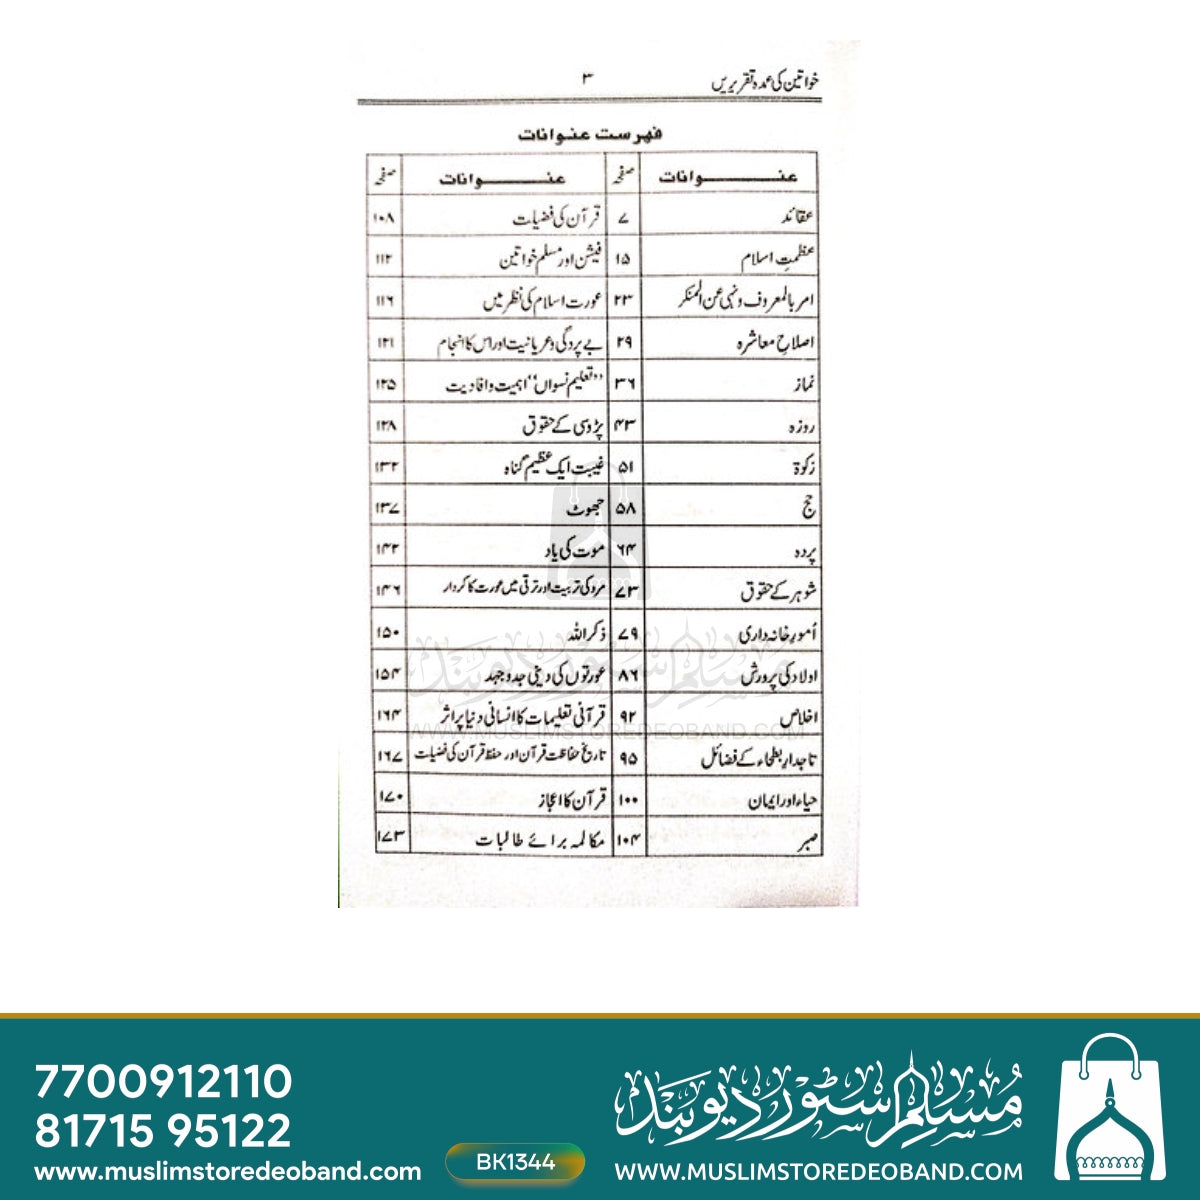 خواتین کی عمدہ تقریریں ۳
فہرست عنوانات
عنوانات صفحہ عنوانات صفحہ
عقائد ۷ قرآن کی فضیلت ۱۰۸
عظمتِ اسلام ۱۵ فیشن اور مسلم خواتین ۱۱۲
امر بالمعروف و نہی عن المنکر ۲۳ عورت اسلام کی نظر میں ۱۱۶
اصلاحِ معاشرہ ۲۹ بے پردگی و عریانیت اور اس کا انجام ۱۲۱
نماز ۳۶ ’’تعلیم نسواں‘‘ اہمیت و افادیت ۱۲۵
روزہ ۴۳ پڑوسی کے حقوق ۱۲۸
زکوۃ ۵۱ غیبت ایک عظیم گناہ ۱۳۲
حج ۵۸ جھوٹ ۱۳۷
پردہ ۶۴ موت کی یاد ۱۴۲
شوہر کے حقوق ۷۳ مرد کی تربیت اور ترقی میں عورت کا کردار ۱۴۶
اُمورِ خانہ داری ۷۹ ذکر اللہ ۱۵۰
اولاد کی پرورش ۸۶ عورتوں کی دینی جدوجہد ۱۵۴
اخلاص ۹۲ قرآنی تعلیمات کا انسانی دنیا پر اثر ۱۶۴
تاجدارِ بطحاء کے فضائل ۹۵ تاریخ حفاظت قرآن اور حفظ قرآن کی فضیلت ۱۶۷
حیاء اور ایمان ۱۰۰ قرآن کا اعجاز ۱۷۰
صبر ۱۰۴ مکالمہ برائے طالبات ۱۷۳
مسلم سٹور دیوبند
WWW.MUSLIMSTOREDEOBAND.COM
7700912110
81715 95122
www.muslimstoredeoband.com
BK1344
مسلم سٹور دیوبند
WWW.MUSLIMSTOREDEOBAND.COM